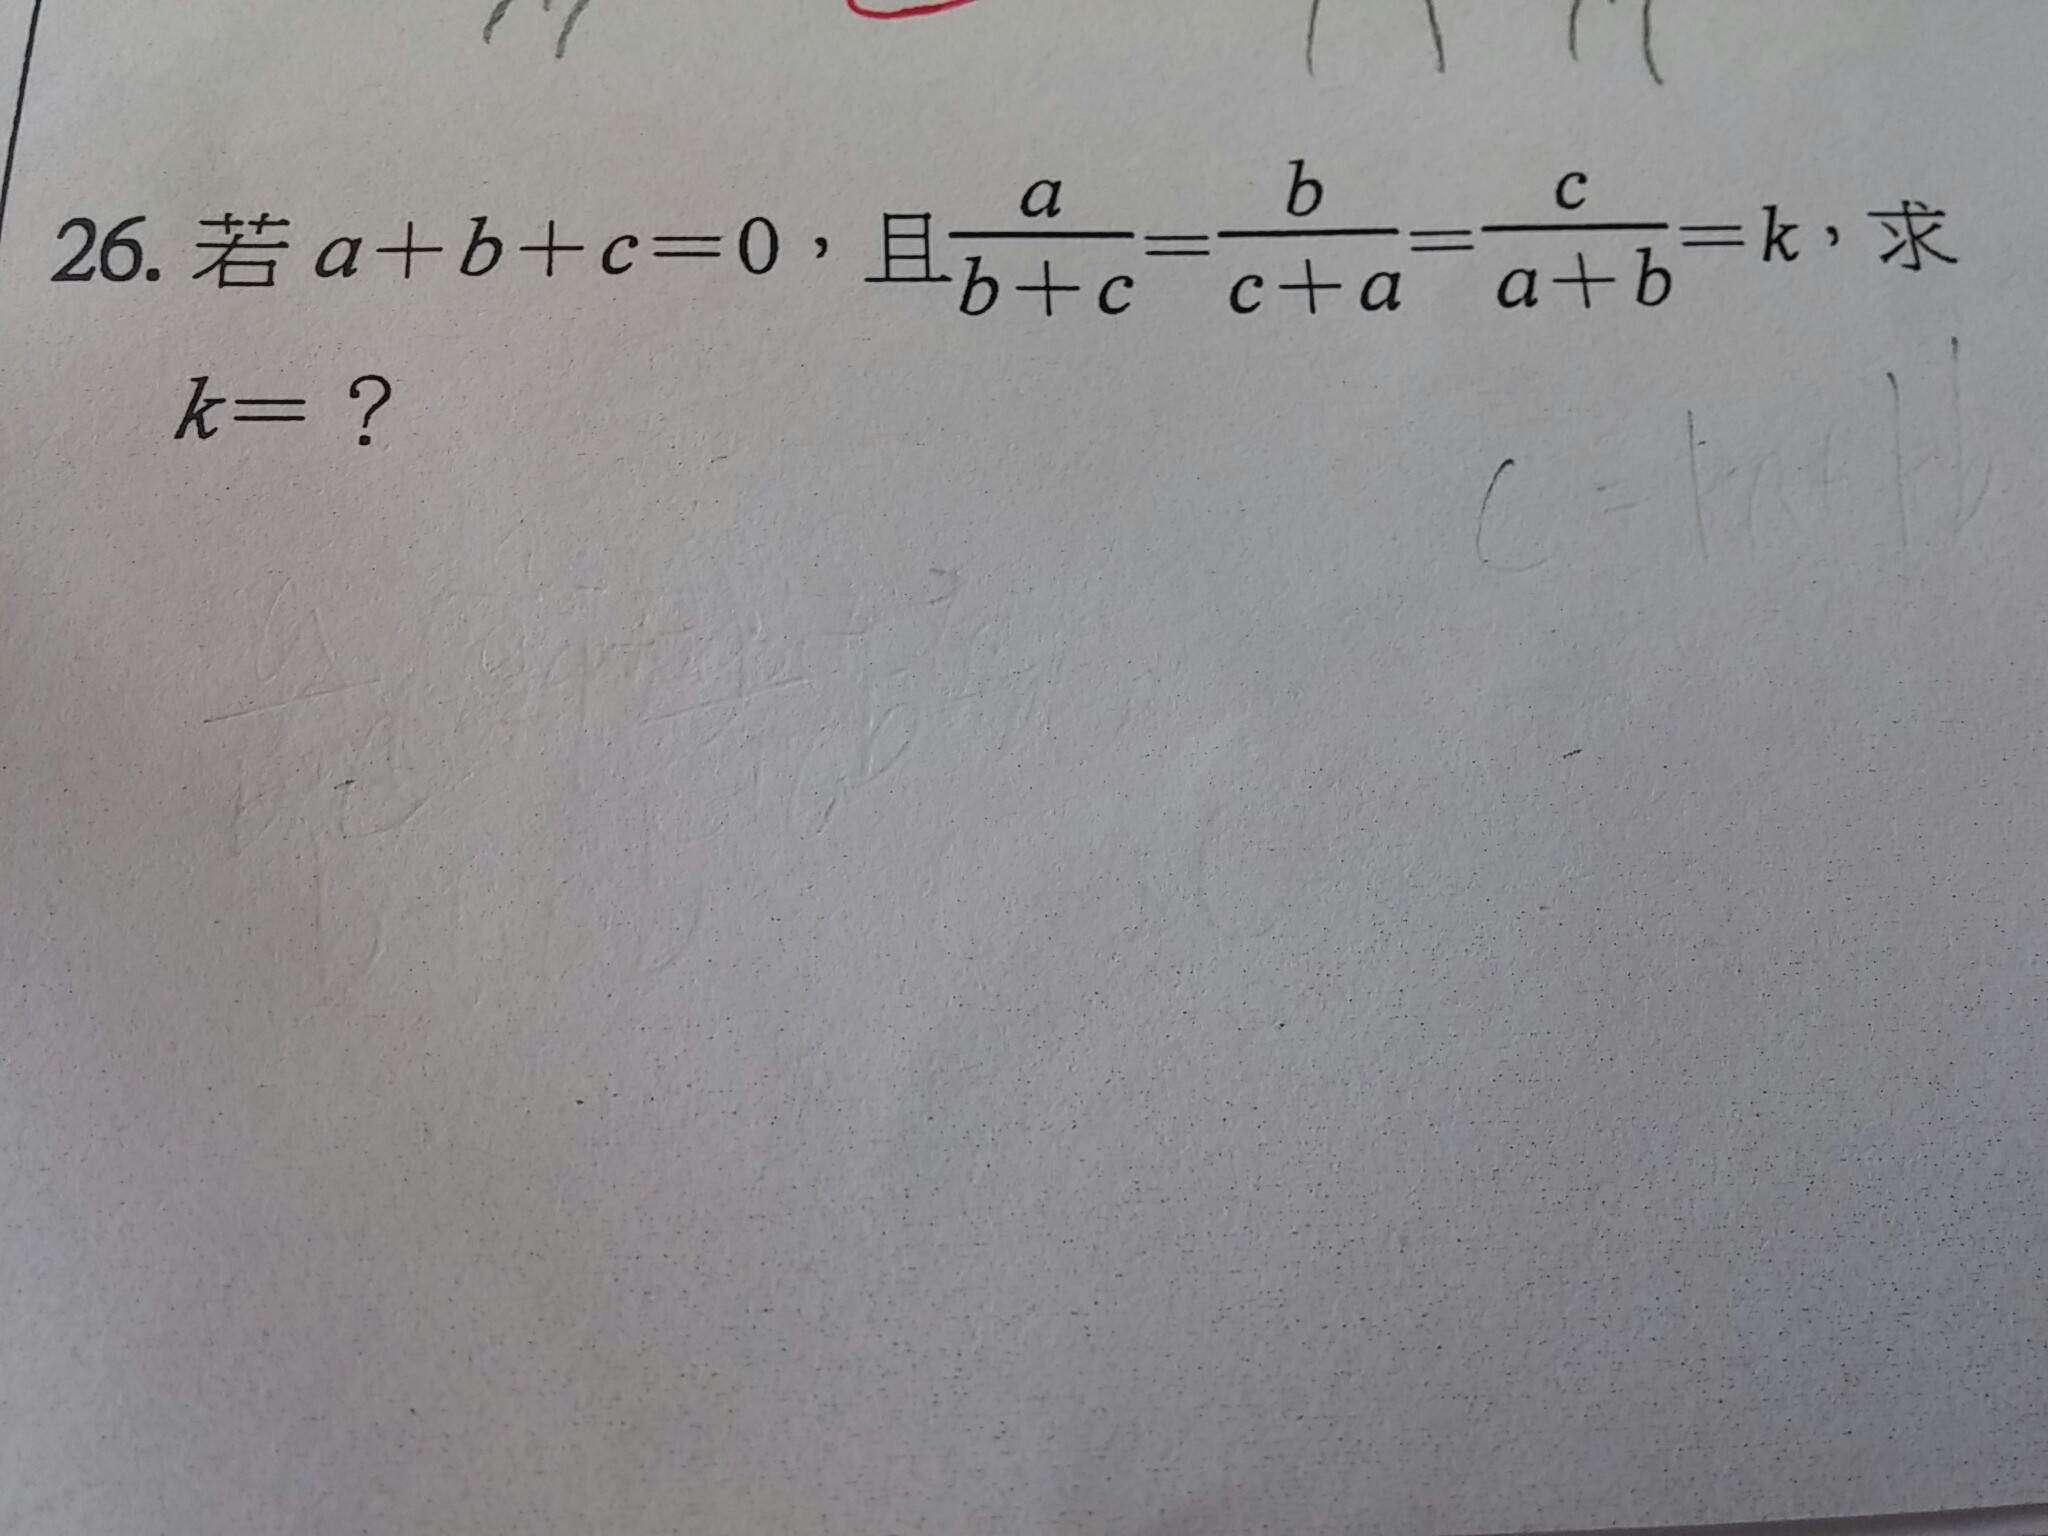 26. 若 a+b+c=0，且 \frac{a}{b+c}=\frac{b}{c+a}=\frac{c}{a+b}=k，求
k=？
c=ka+kb